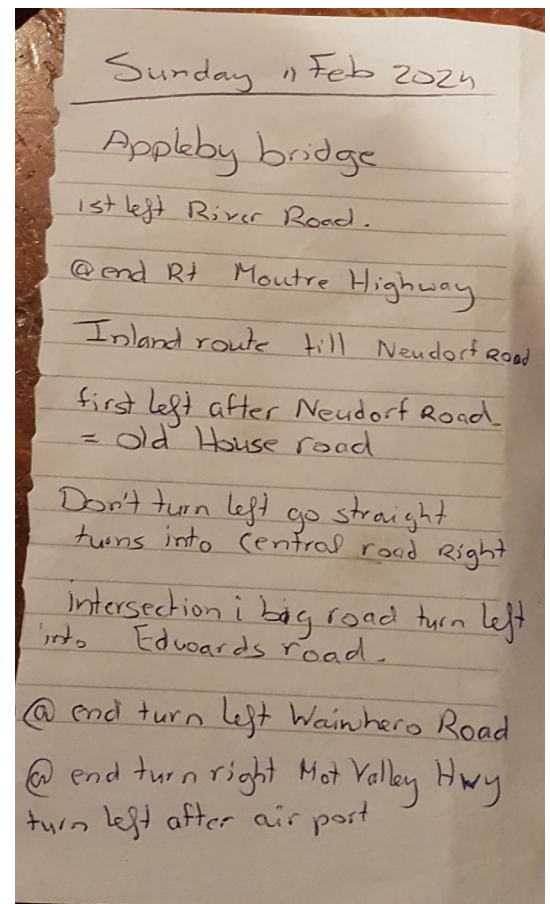 Sunday 11 Feb 2024
Appleby bridge
1st left River Road.
@ end Rt Moutre Highway
Inland route till Neudorf Road
first left after Neudorf Road
= Old House road
Don't turn left go straight
turns into Central road Right
intersection i big road turn left
into Edwards road.
@ end turn left Wainhero Road
@ end turn right Mot Valley Hwy
turn left after air port